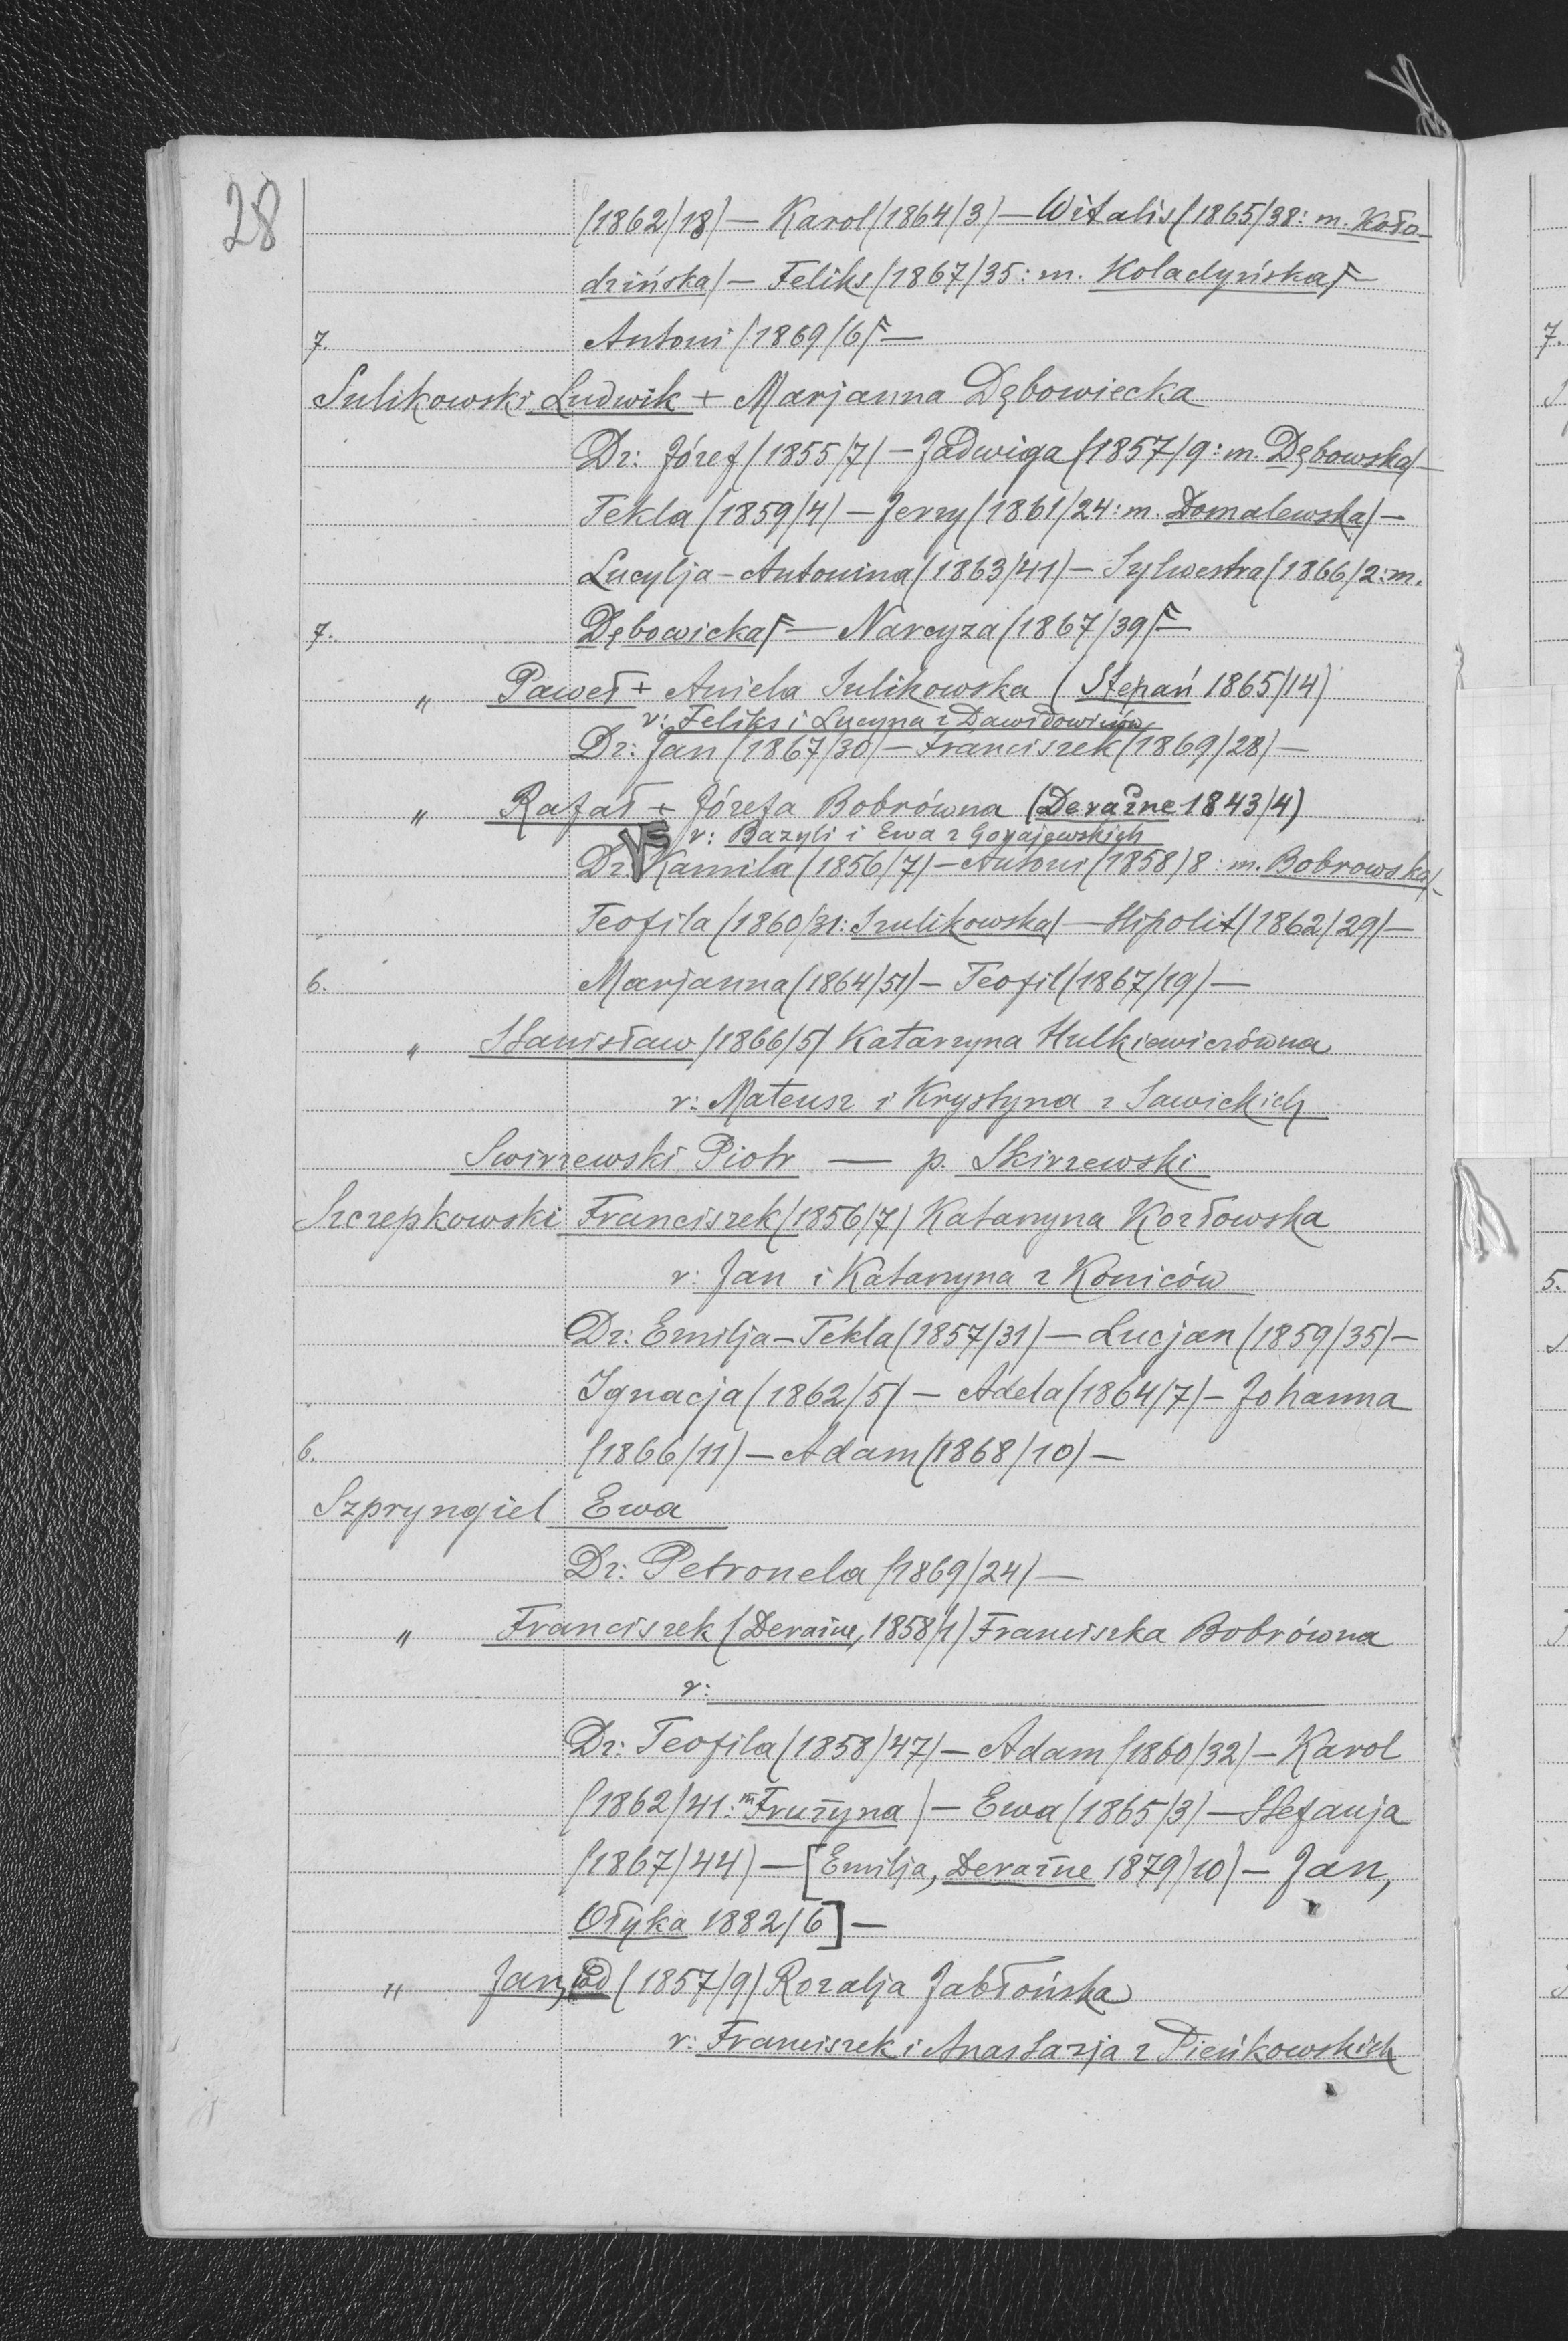 28
(1862/18) — Karol (1864/3) — Witalis (1865/38: m. Koło-
dzińska) — Feliks (1867/35: m. Koladyńska) —
7. Antoni (1869/6) —
Sulikowski Ludwik + Marjanna Dębowiecka
Dz: Józef (1855/7) — Jadwiga (1857/9: m. Dębowska) —
Tekla (1859/4) — Jerzy (1861/24: m. Domalewska) —
Lucylja - Antonina (1863/41) — Sylwestra (1866/2: m.
7. Dębowicka) — Narcyza (1867/39) —
" Paweł + Aniela Sulikowska (Stepań 1865/14)
r: Feliks i Lucyna z Dawidowiczów
Dz: Jan (1867/30) — Franciszek (1869/28) —
" Rafał + Józefa Bobrówna (Derażne 1843/4)
r: Bazyli i Ewa z Gorajewskich
Dz: Kamila (1856/7) — Antoni (1858/8: m. Bobrowska) —
Teofila (1860/31: Szulikowska) — Hipolit (1862/29) —
6. Marjanna (1864/51) — Teofil (1867/19) —
" Stanisław (1866/5) Katarzyna Hulkiewiczówna
r: Mateusz i Krystyna z Sawickich
Swirzewski Piotr — p. Skirzewski
Szczepkowski Franciszek (1856/7) Katarzyna Kozłowska
r: Jan i Katarzyna z Koniców
Dz: Emilja - Tekla (1857/31) — Lucjan (1859/35) —
Ignacja (1862/5) — Adela (1864/7) — Johanna
6. (1866/11) — Adam (1868/10) —
Szpryngiel Ewa
Dz: Petronela (1869/24) —
" Franciszek (Derażne, 1858/1) Franciszka Bobrówna
r:
Dz: Teofila (1858/47) — Adam (1860/32) — Karol
(1862/41: m Frużyna) — Ewa (1865/3) — Stefanja
(1867/44) — [Emilja, Derażne 1879/10) — Jan,
Ołyka 1882/6] —
" Jan, wd (1857/9) Rozalja Jabłońska
r: Franciszek i Anastazja z Pieńkowskich
7.
5.